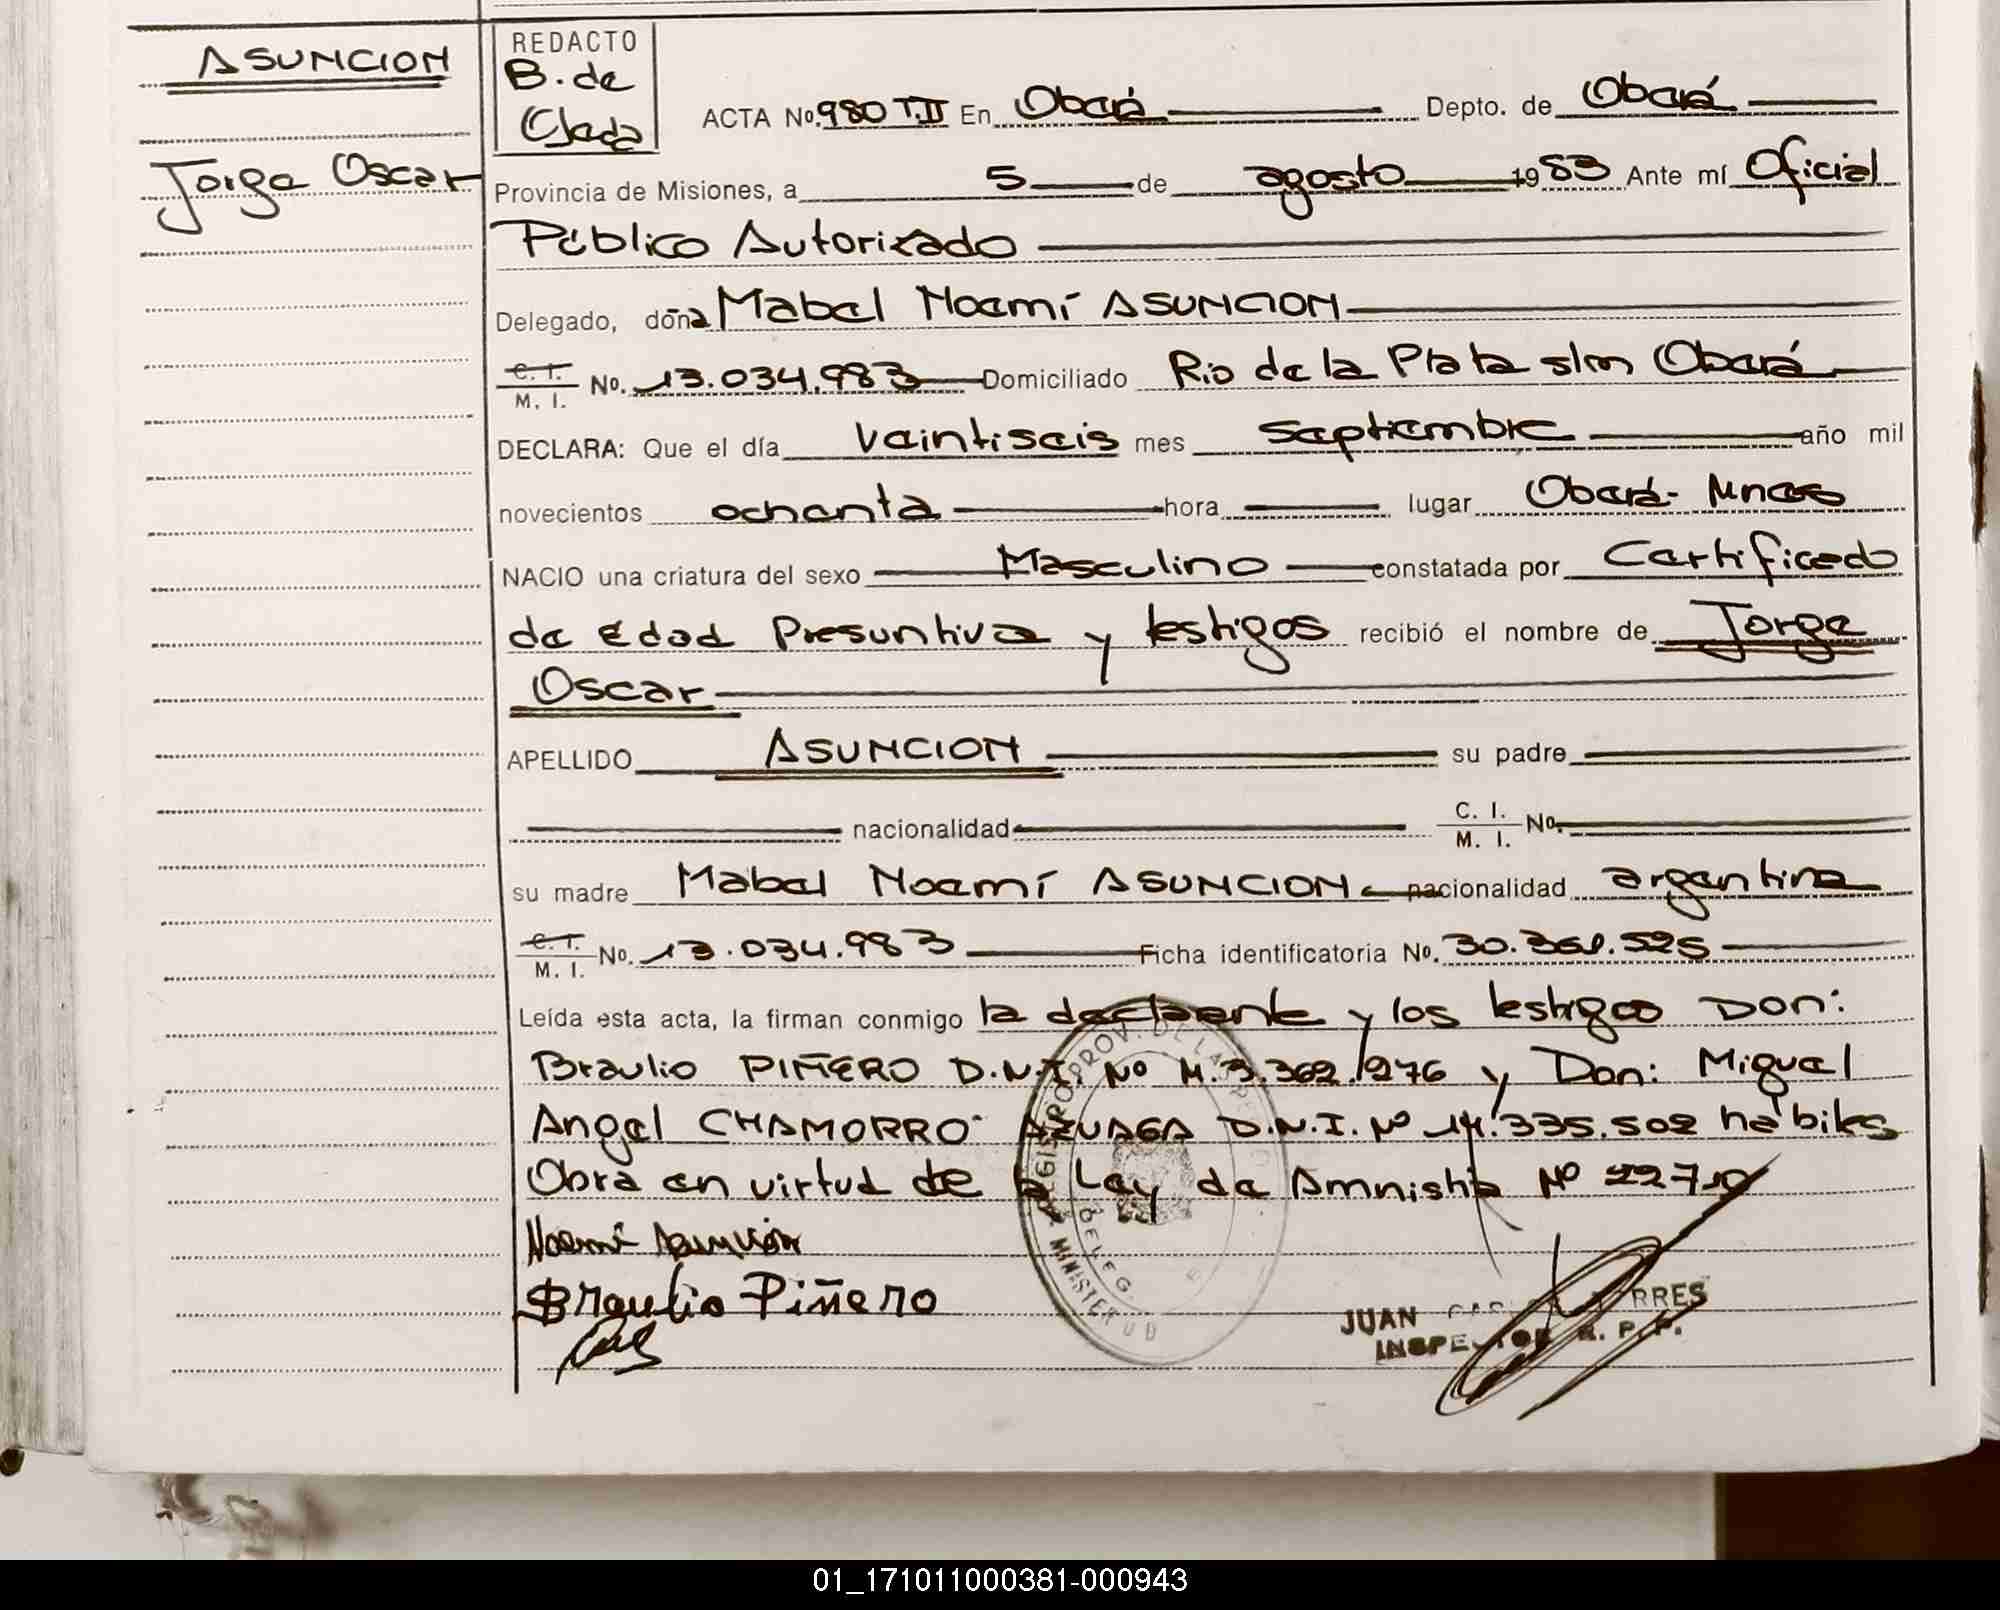 ASUNCION
Jorge Oscar
REDACTO
B. de
ACTA No. 980 T.II En Oberá Depto. de Oberá
Provincia de Misiones, a 5 de agosto 1983 Ante mí Oficial
Público Autorizado
Delegado, doña Mabel Noemí ASUNCION
C. I. / M. I. No. 13.034.983 Domiciliado Rio de la Plata s/n Oberá
DECLARA: Que el día veintiseis mes septiembre año mil
novecientos ochenta hora lugar Oberá- Mnes
NACIO una criatura del sexo Masculino constatada por Certificado
de Edad Presuntiva y testigos recibió el nombre de Jorge
Oscar
APELLIDO ASUNCION su padre
nacionalidad C. I. / M. I. No.
su madre Mabel Noemí ASUNCION nacionalidad argentina
C. I. / M. I. No. 13.034.983 Ficha identificatoria No. 30.361.525
Leída esta acta, la firman conmigo la declarante y los testigos Don:
Braulio PIÑERO D.N.I. Nº M.3.362.276 y Don: Miguel
Angel CHAMORRO AZUAGA D.N.I. Nº 14.335.502 hábiles
Obra en virtud de la Ley de Amnistía Nº 22710
Noemí Asunción
Braulio Piñero
JUAN CARLOS TORRES
INSPECTOR R. P. P.
01_171011000381-000943